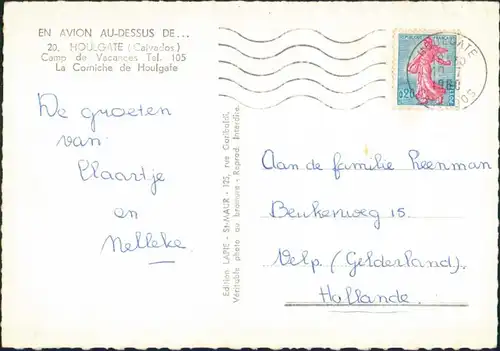 EN AVION AU-DESSUS DE...
20. HOULGATE (Calvados)
Camp de Vacances Tel. 105
La Corniche de Houlgate
De groeten
van
Klaartje
en
Nelleke.
Edition LAPIE - St-MAUR - 125, rue Garibaldi,
Véritable photo au bromure - Reprod. Interdite.
0,20
Aan de familie Leenman
Beukenweg 15.
Velp. (Gelderland)
Hollande.